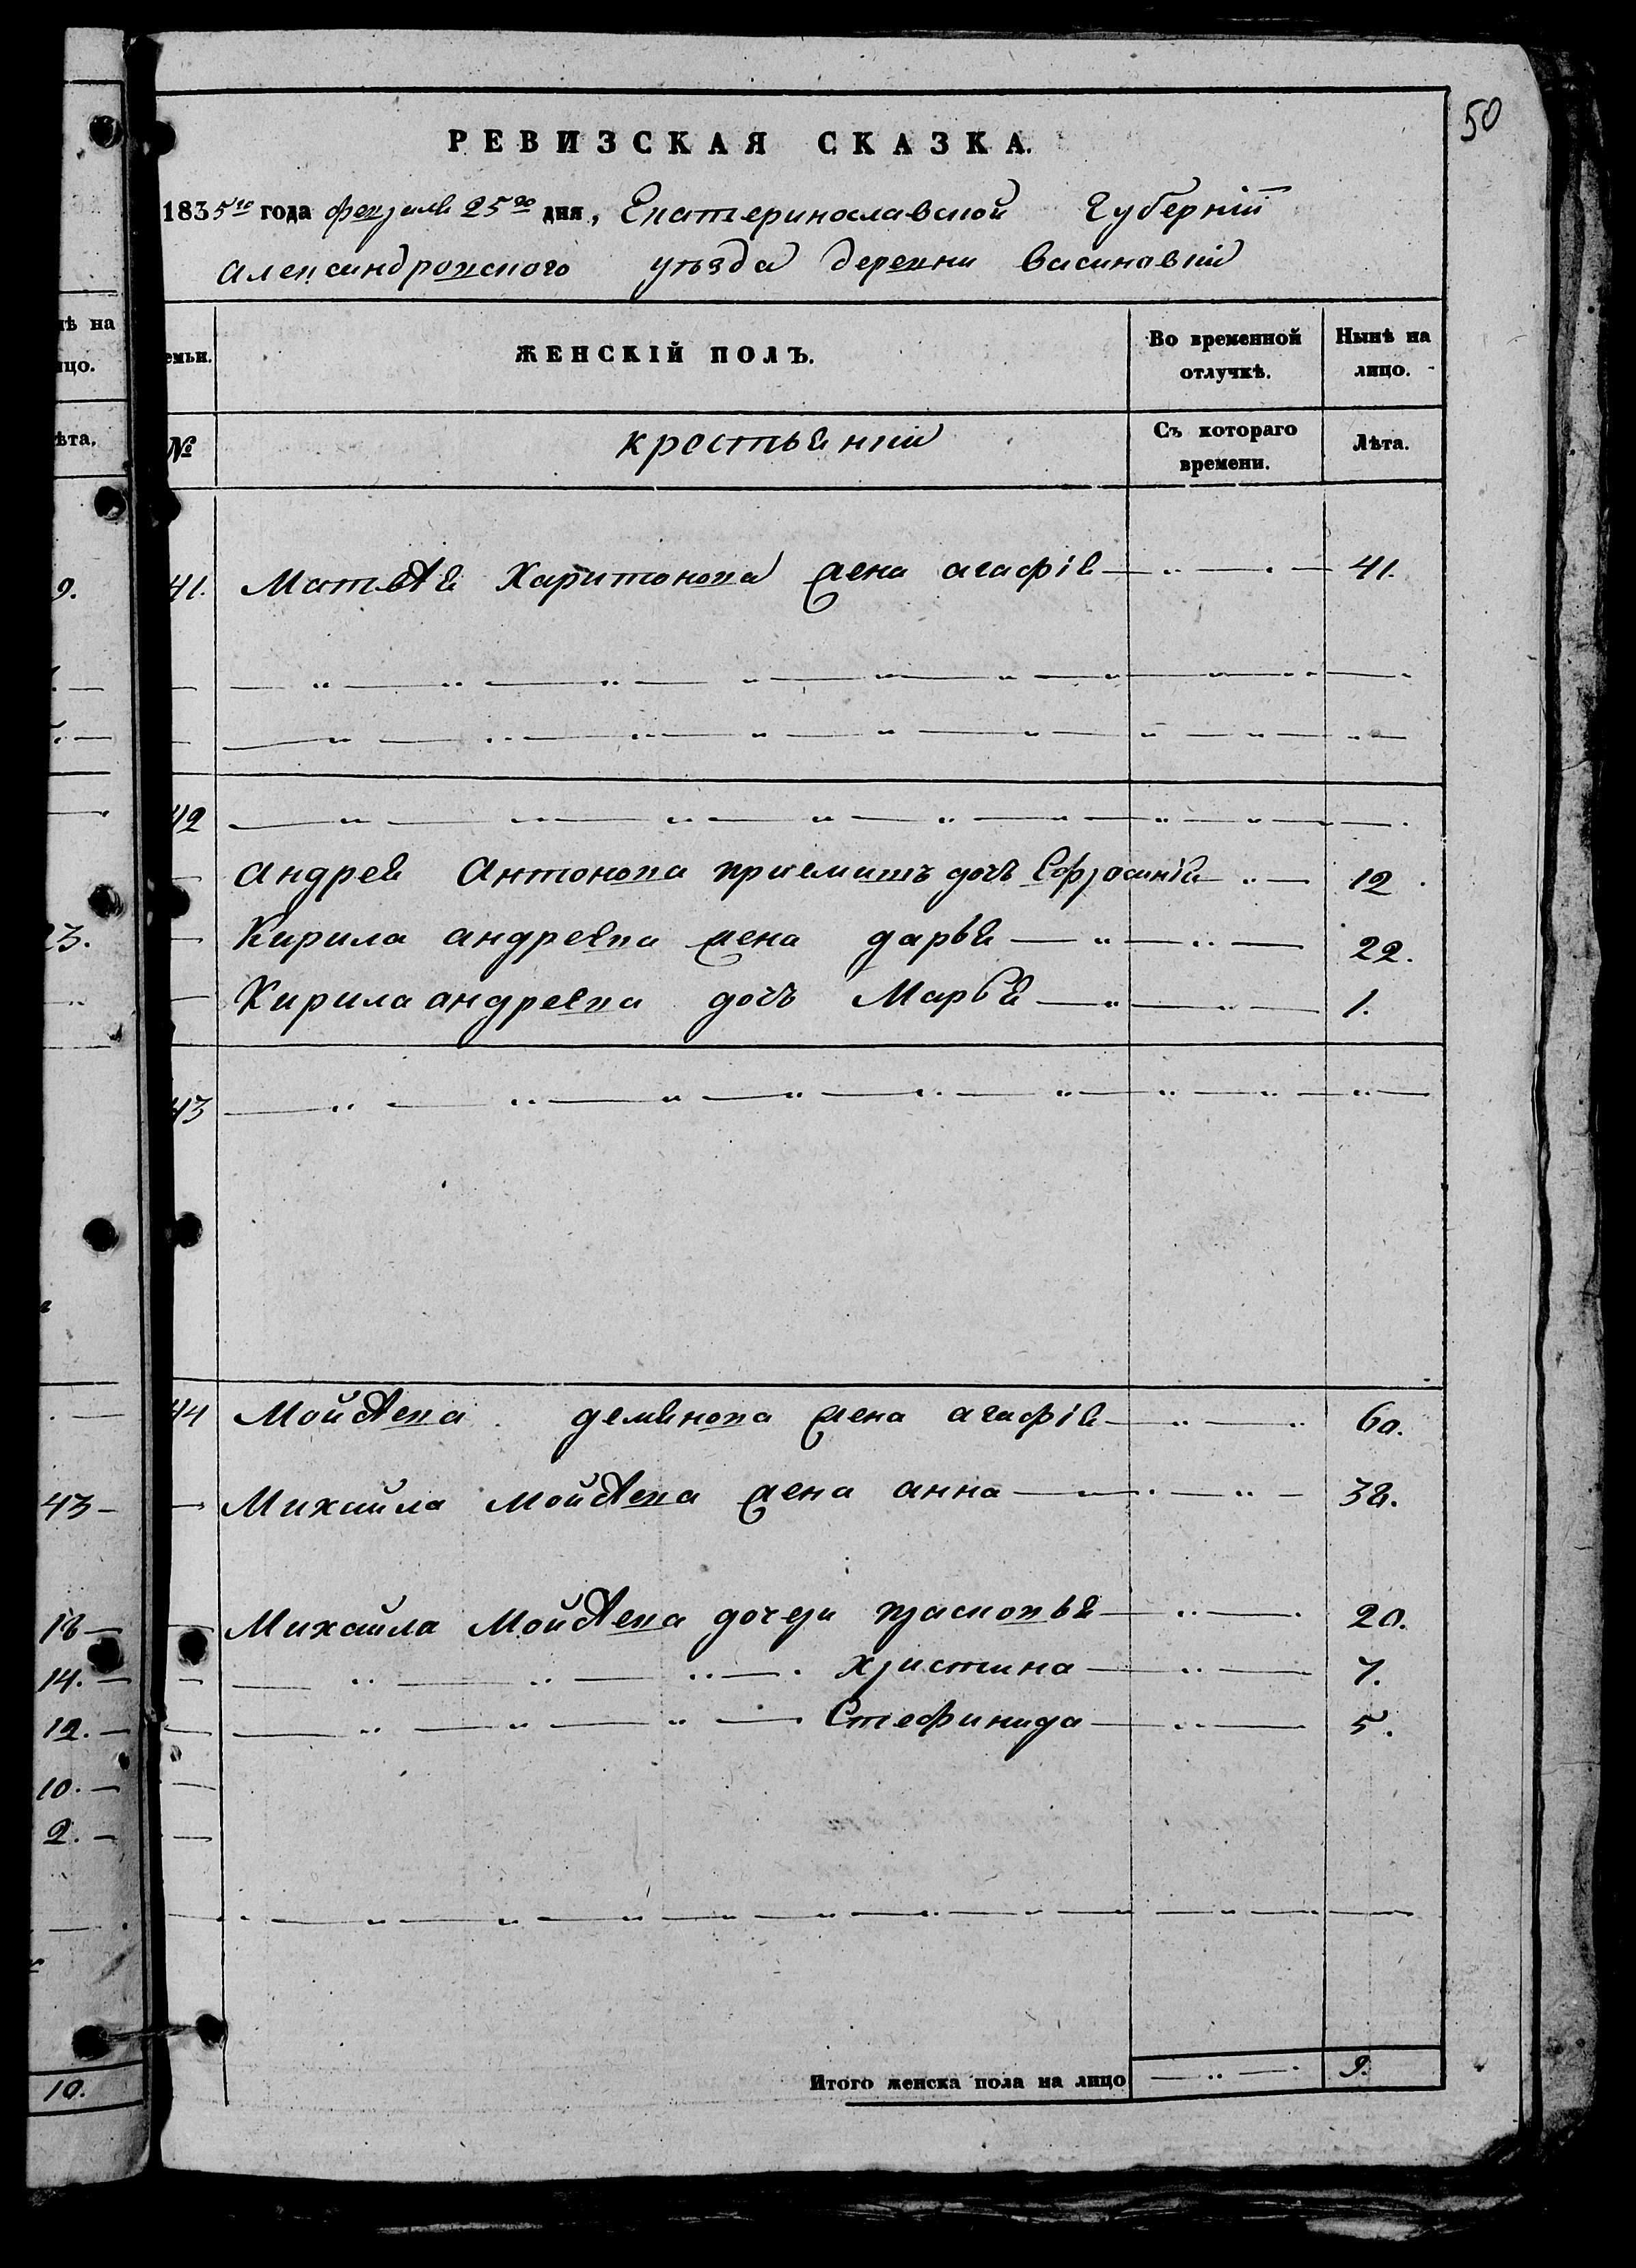 50
РЕВИЗСКАЯ СКАЗКА.
1835го года февраля 25го дня, Екатеринославской Губерніи
александровского уѣзда деревни васиновки
емьи. ЖЕНСКІЙ ПОЛЪ. Во временной отлучкѣ. Нынѣ на лицо.
№ крестьяніи Съ котораго времени. Лѣта.
41. Матвѣя Харитонова жена агафія 41.
42
андрея Антонова приемышъ дочь Ефросинія 12
Кирила андреева жена дарья 22.
Кирила андреева дочь Марья 1.
43
44 Мойсѣева демянова жена агафія 60.
Михайла Мойсѣева жена анна 38.
Михайла Мойсѣева дочери прасковья 20.
христина 7.
Стефанида 5.
Итого женска пола на лицо 9.
ѣ на
ицо.
ѣта.
9.
23.
43
18
14.
12.
10.
2.
10.